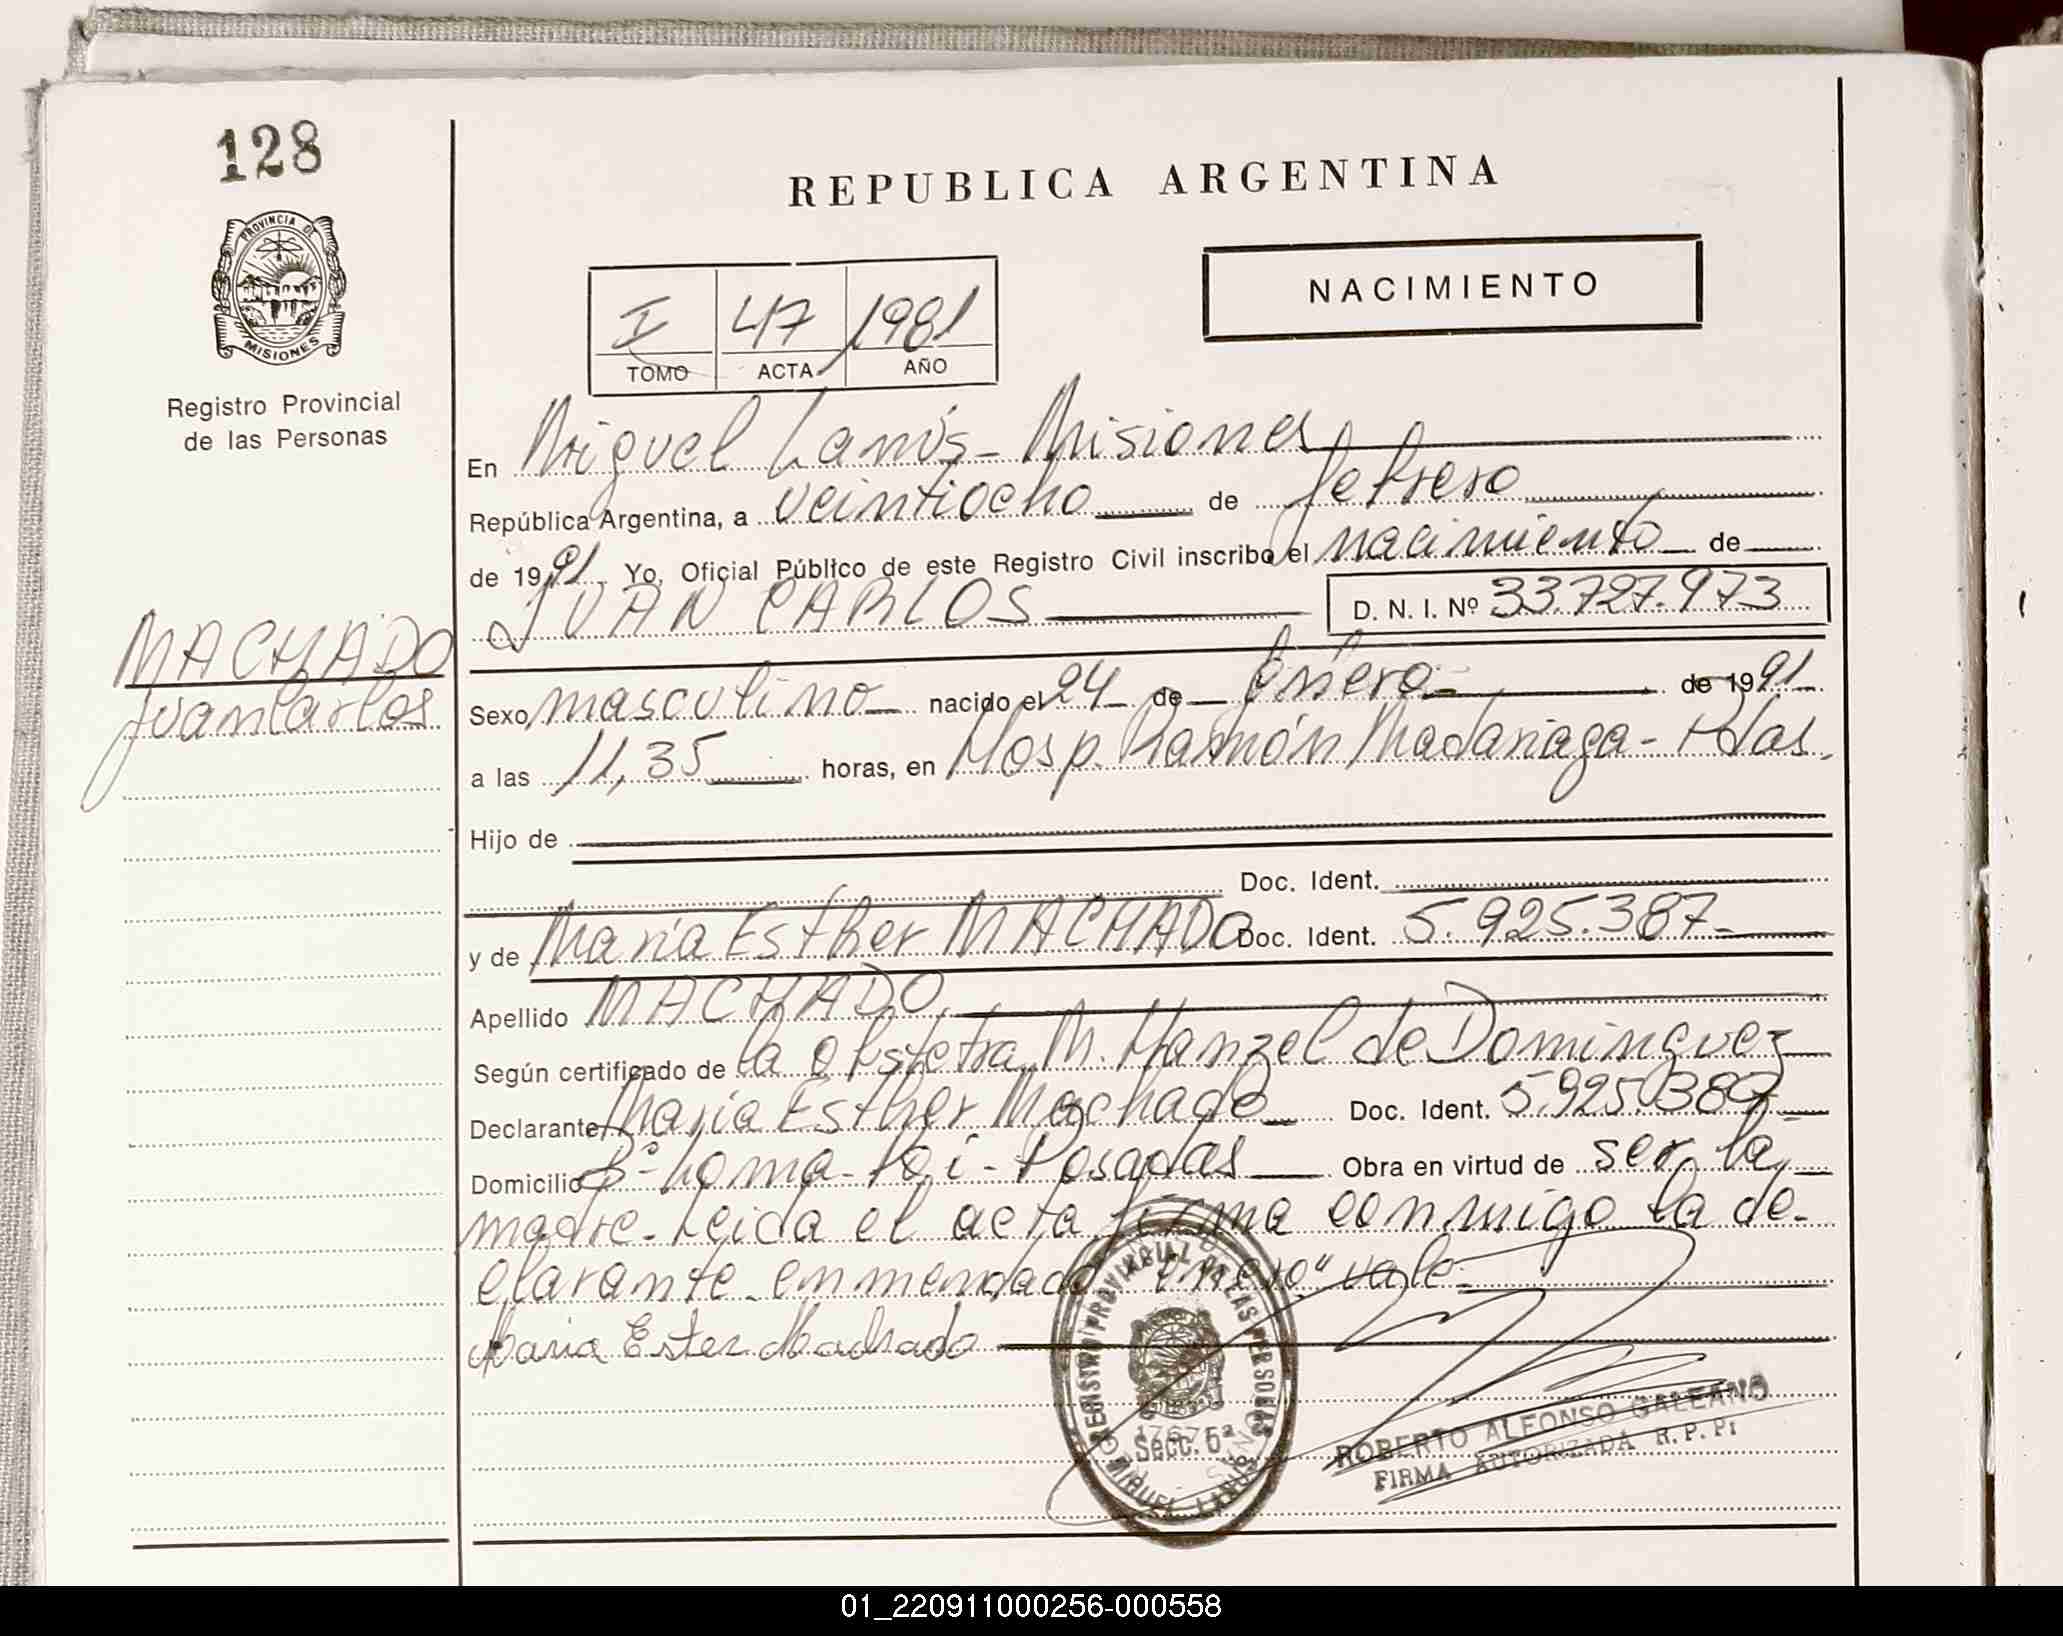 128
REPUBLICA ARGENTINA
PROVINCIA DE
MISIONES
NACIMIENTO
I 47 1981
TOMO ACTA AÑO
Registro Provincial
de las Personas
En Miguel Lanús - Misiones
República Argentina, a veintiocho de febrero
de 1991 Yo, Oficial Público de este Registro Civil inscribo el nacimiento de
JUAN CARLOS D. N. I. Nº 33.727.973
MACHADO
Juan Carlos
Sexo masculino nacido el 24 de Enero de 1991
a las 11,35 horas, en Hosp. Ramón Madariaga - Pdas.
Hijo de
Doc. Ident.
y de María Esther MACHADO Doc. Ident. 5.925.387-
Apellido MACHADO
Según certificado de la Obstetra M. Hanzel de Dominguez
Declarante María Esther Machado Doc. Ident. 5.925.387
Domicilio Bº- Loma- Poi- Posadas Obra en virtud de ser la
madre- Leida el acta firma conmigo la de-
clarante- enmendado "Enero" vale-
Maria Ester Machado
REGISTRO PROVINCIAL DE LAS PERSONAS
Secc. 6ª
MIGUEL LANUS
ROBERTO ALFONSO GALEANO
FIRMA AUTORIZADA R. P. P.
01_220911000256-000558